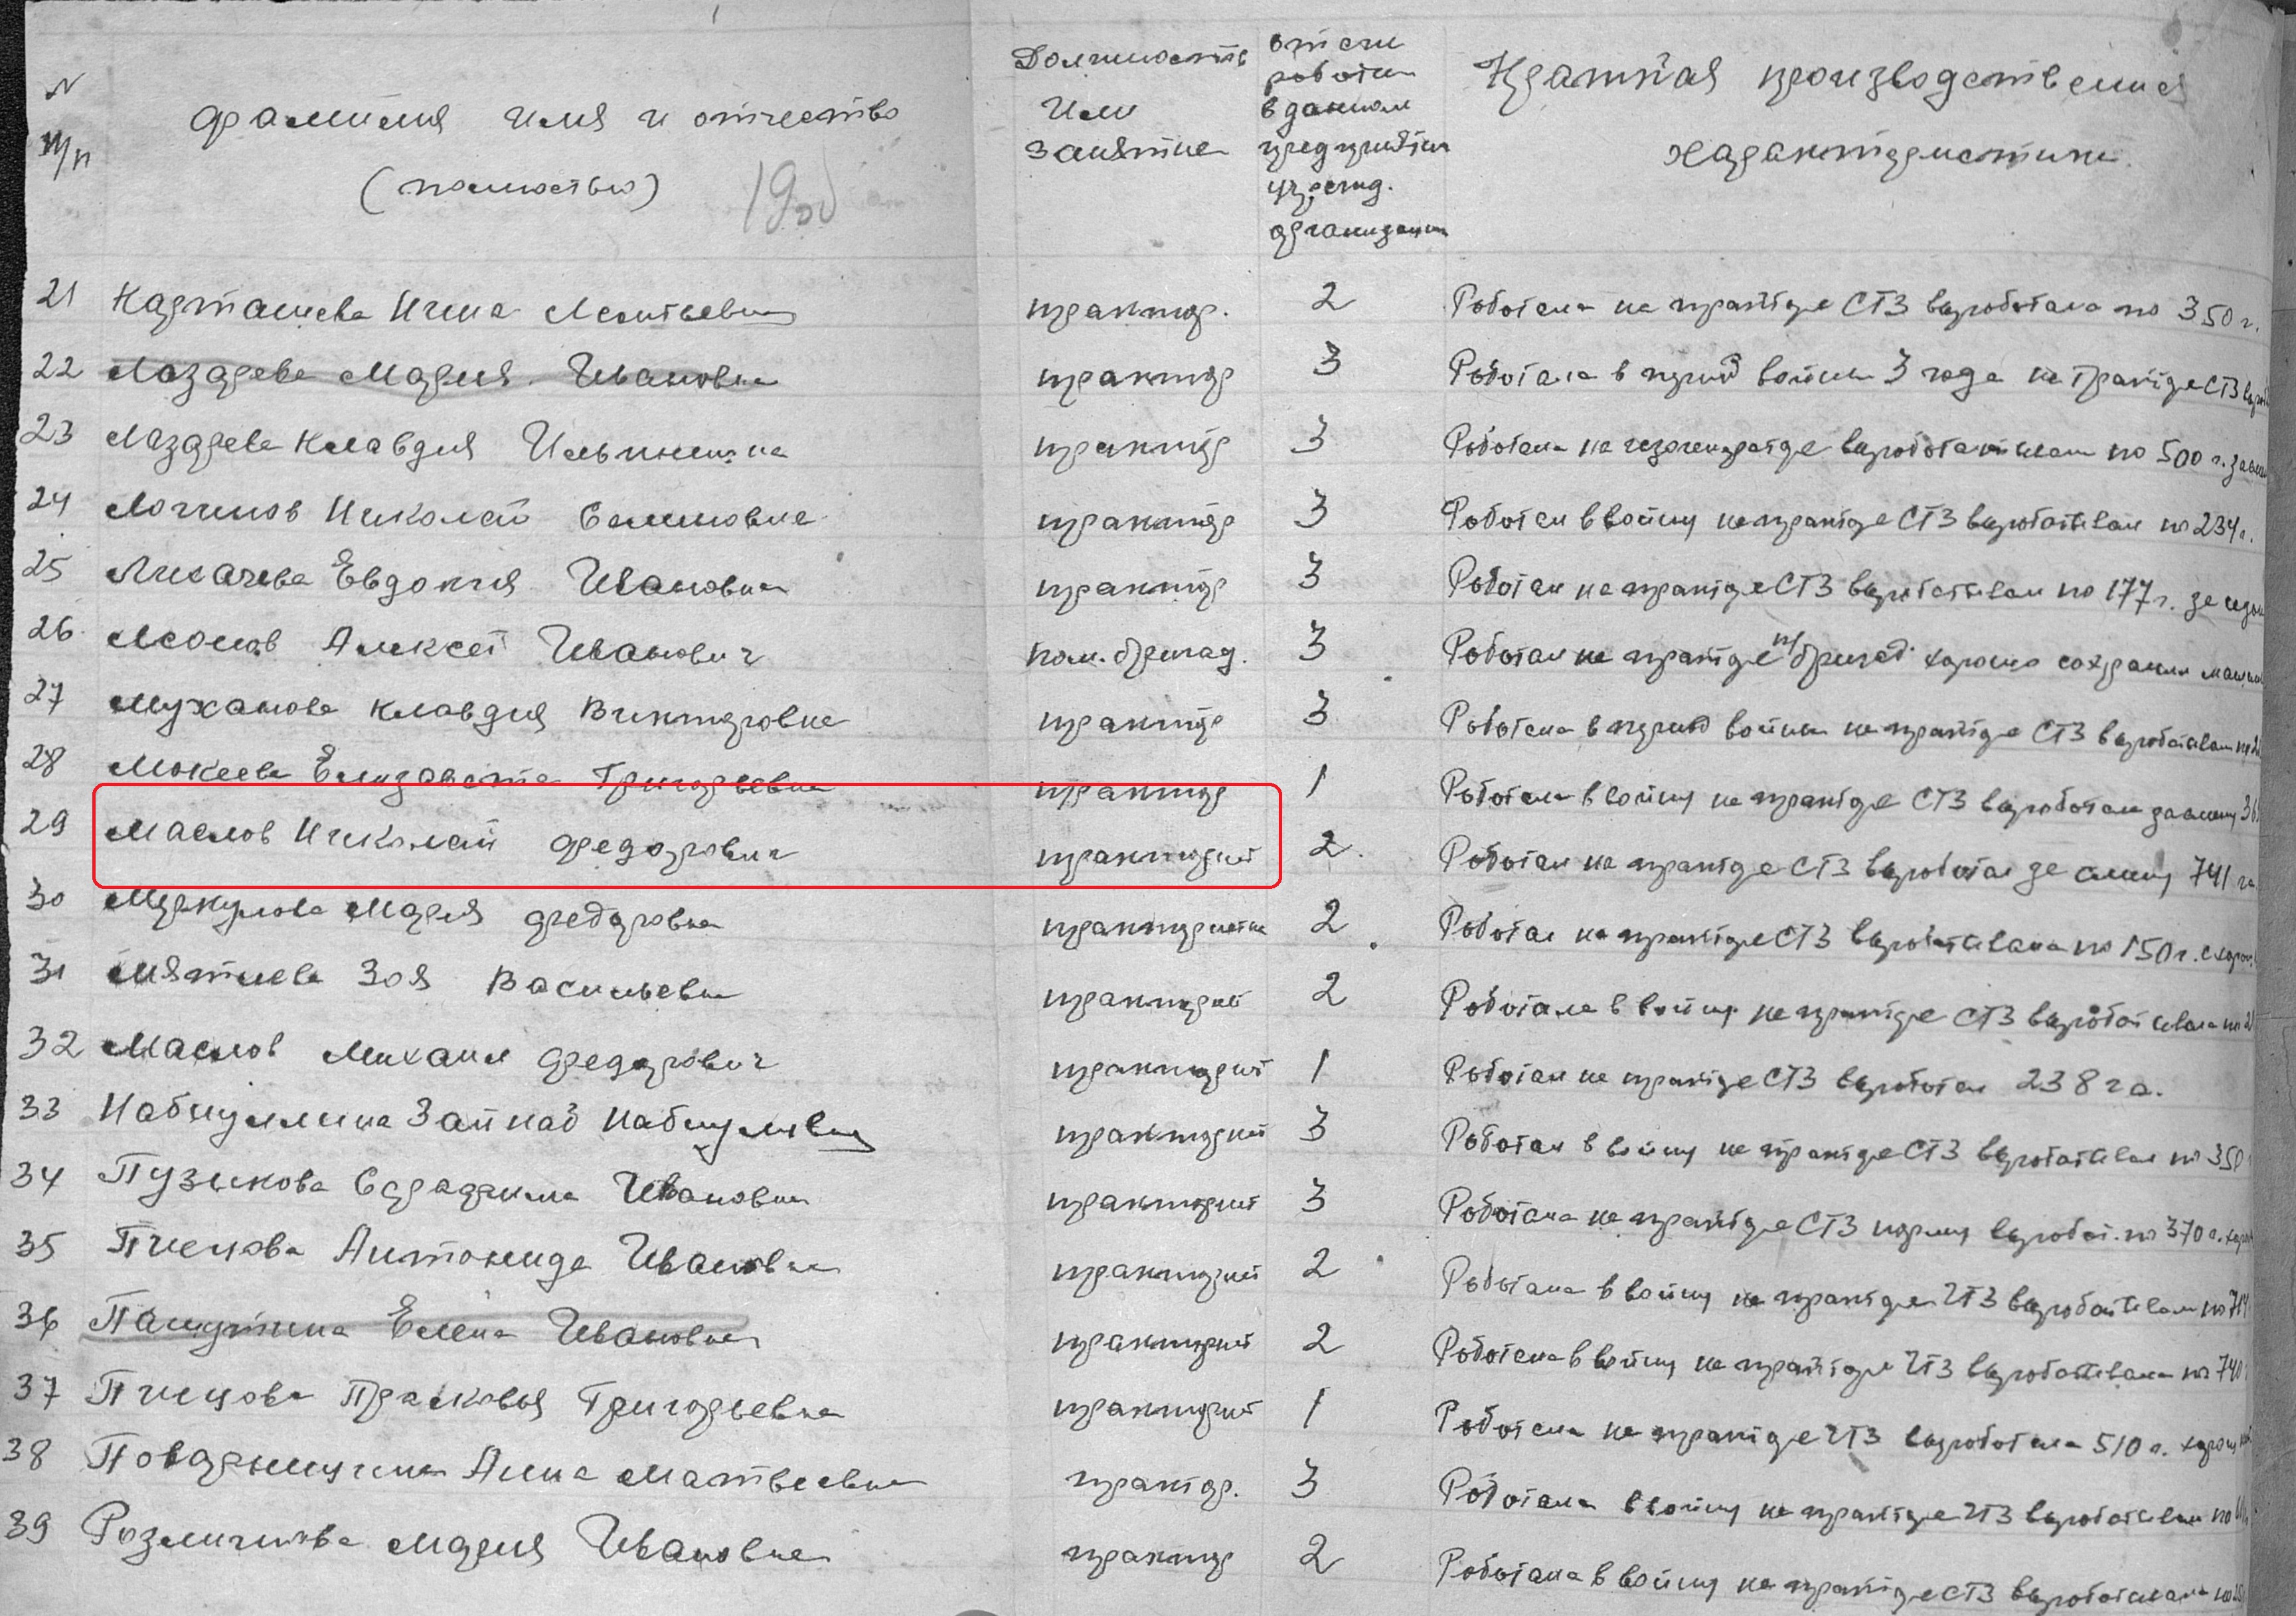 N п/п
Фамилия имя и отчество
(полностью)
Должность
или
занятие
работы
в данном
предприятии
учрежд.
организации
Краткая производственная
характеристика.
21 Карташева Нина Леонтьевна трактор. 2 Работала на тракторе СТЗ выработала по 350 г.
22 Лазарева Мария Ивановна трактор 3 Работала в период войны 3 года на тракторе СТЗ
23 Лазарева Клавдия Ильинична трактор 3 Работала на по 500 г.
24 Логинов Николай трактор 3 Работал в войну на тракторе СТЗ вырабатывал по 234 г.
25 Лихачева Евдокия Ивановна трактор 3 Работал на тракторе СТЗ вырабатывал по 177 г. за
26 Алексей Иванович пом. бригад. 3 Работал на тракторе п/бригад. хорошо сохранял
27 Муханова Клавдия Викторовна трактор 3 Работала в период войны на тракторе СТЗ вырабатывал
28 Мокеева Елизавета Григорьевна трактор 1 Работала в войну на тракторе СТЗ выработал
29 Маслов Николай Федорович тракторист 2. Работал на тракторе СТЗ выработал за смену 741 га
30 Меркулова Мария Федоровна трактористка 2 Работал на тракторе СТЗ вырабатывала по 150 г.
31 Мятлева Зоя Васильевна тракторист 2 Работала в войну на тракторе СТЗ вырабатывала
32 Маслов Михаил Федорович тракторист 1 Работал на тракторе СТЗ выработал 238 га.
33 Набиуллина тракторист 3 Работал в войну на тракторе СТЗ вырабатывал по 350
34 Пузыкова Ивановна тракторист 3 Работала на тракторе СТЗ норму выработ. по 370 г.
35 Антонида Ивановна тракторист 2 Работала в войну на тракторе ЧТЗ вырабатывал по
36 Елена Ивановна тракторист 2 Работала в войну на тракторе ЧТЗ вырабатывала по 740
37 Прасковья Григорьевна тракторист 1 Работала на тракторе ЧТЗ выработала 510 г.
38 Анна Матвеевна трактор. 3 Работала в войну на тракторе ЧТЗ вырабатывал по
39 Мария Ивановна трактор 2 Работала в войну на тракторе СТЗ вырабатывала